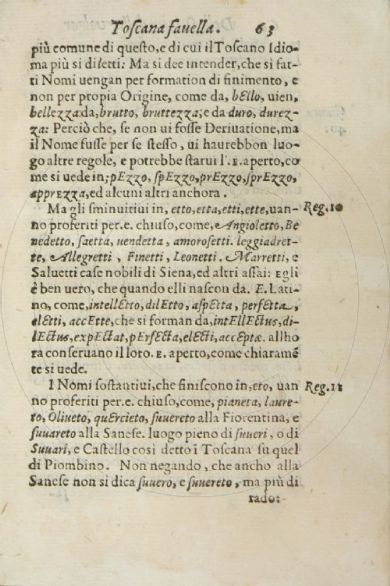 Toscana favella. 63
più comune di questo, e di cui il Toscano Idio-
ma più si diletti: Ma si dee intender, che si fat-
ti Nomi uengan per formation di finimento, e
non per propia Origine, come da, bEllo, uien,
bellezza da, brutto, bruttezza; e da duro, durez-
za: Perciò che, se non ui fosse Deriuatione, ma
il Nome fusse per se stesso, ui haurebbon luo-
go altre regole, e potrebbe starui l'.E. aperto, co
me si uede in; pEzzo, spEzzo, prEzzo, sprEzzo,
apprEzza, ed alcuni altri anchora.
Ma gli sminuitiui in, etto, etta, etti, ette, uan-
no proferiti per .e. chiuso, come, Angioletto, Be
nedetto, saetta, uendetta, amorosetti. leggiadret-
te, Allegretti, Finetti, Leonetti. Marretti, e
Saluetti case nobili di Siena, ed altri assai: Egli
è ben uero, che quando elli nascon da. E. Lati-
no, come, intellEtto, dilEtto, aspEtta, perfEtta,
elEtti, accEtte, che si forman da, intEllEctus, di-
lEctus, expEctat, pErfEcta, elEcti, accEptæ. allho
ra conseruano il loro. E. aperto, come chiaramē
te si uede.
Reg. 10
I Nomi sostantiui, che finiscono in, eto, uan
no proferiti per .e. chiuso, come, pianeta, laure-
to, Oliueto, quErcieto, suuereto alla Fiorentina, e
suuareto alla Sanese. luogo pieno di suueri, o di
Suuari, e Castello così detto i Toscana su quel
di Piombino. Non negando, che ancho alla
Sanese non si dica suuero, e suuereto, ma più di
rado:
Reg. 11